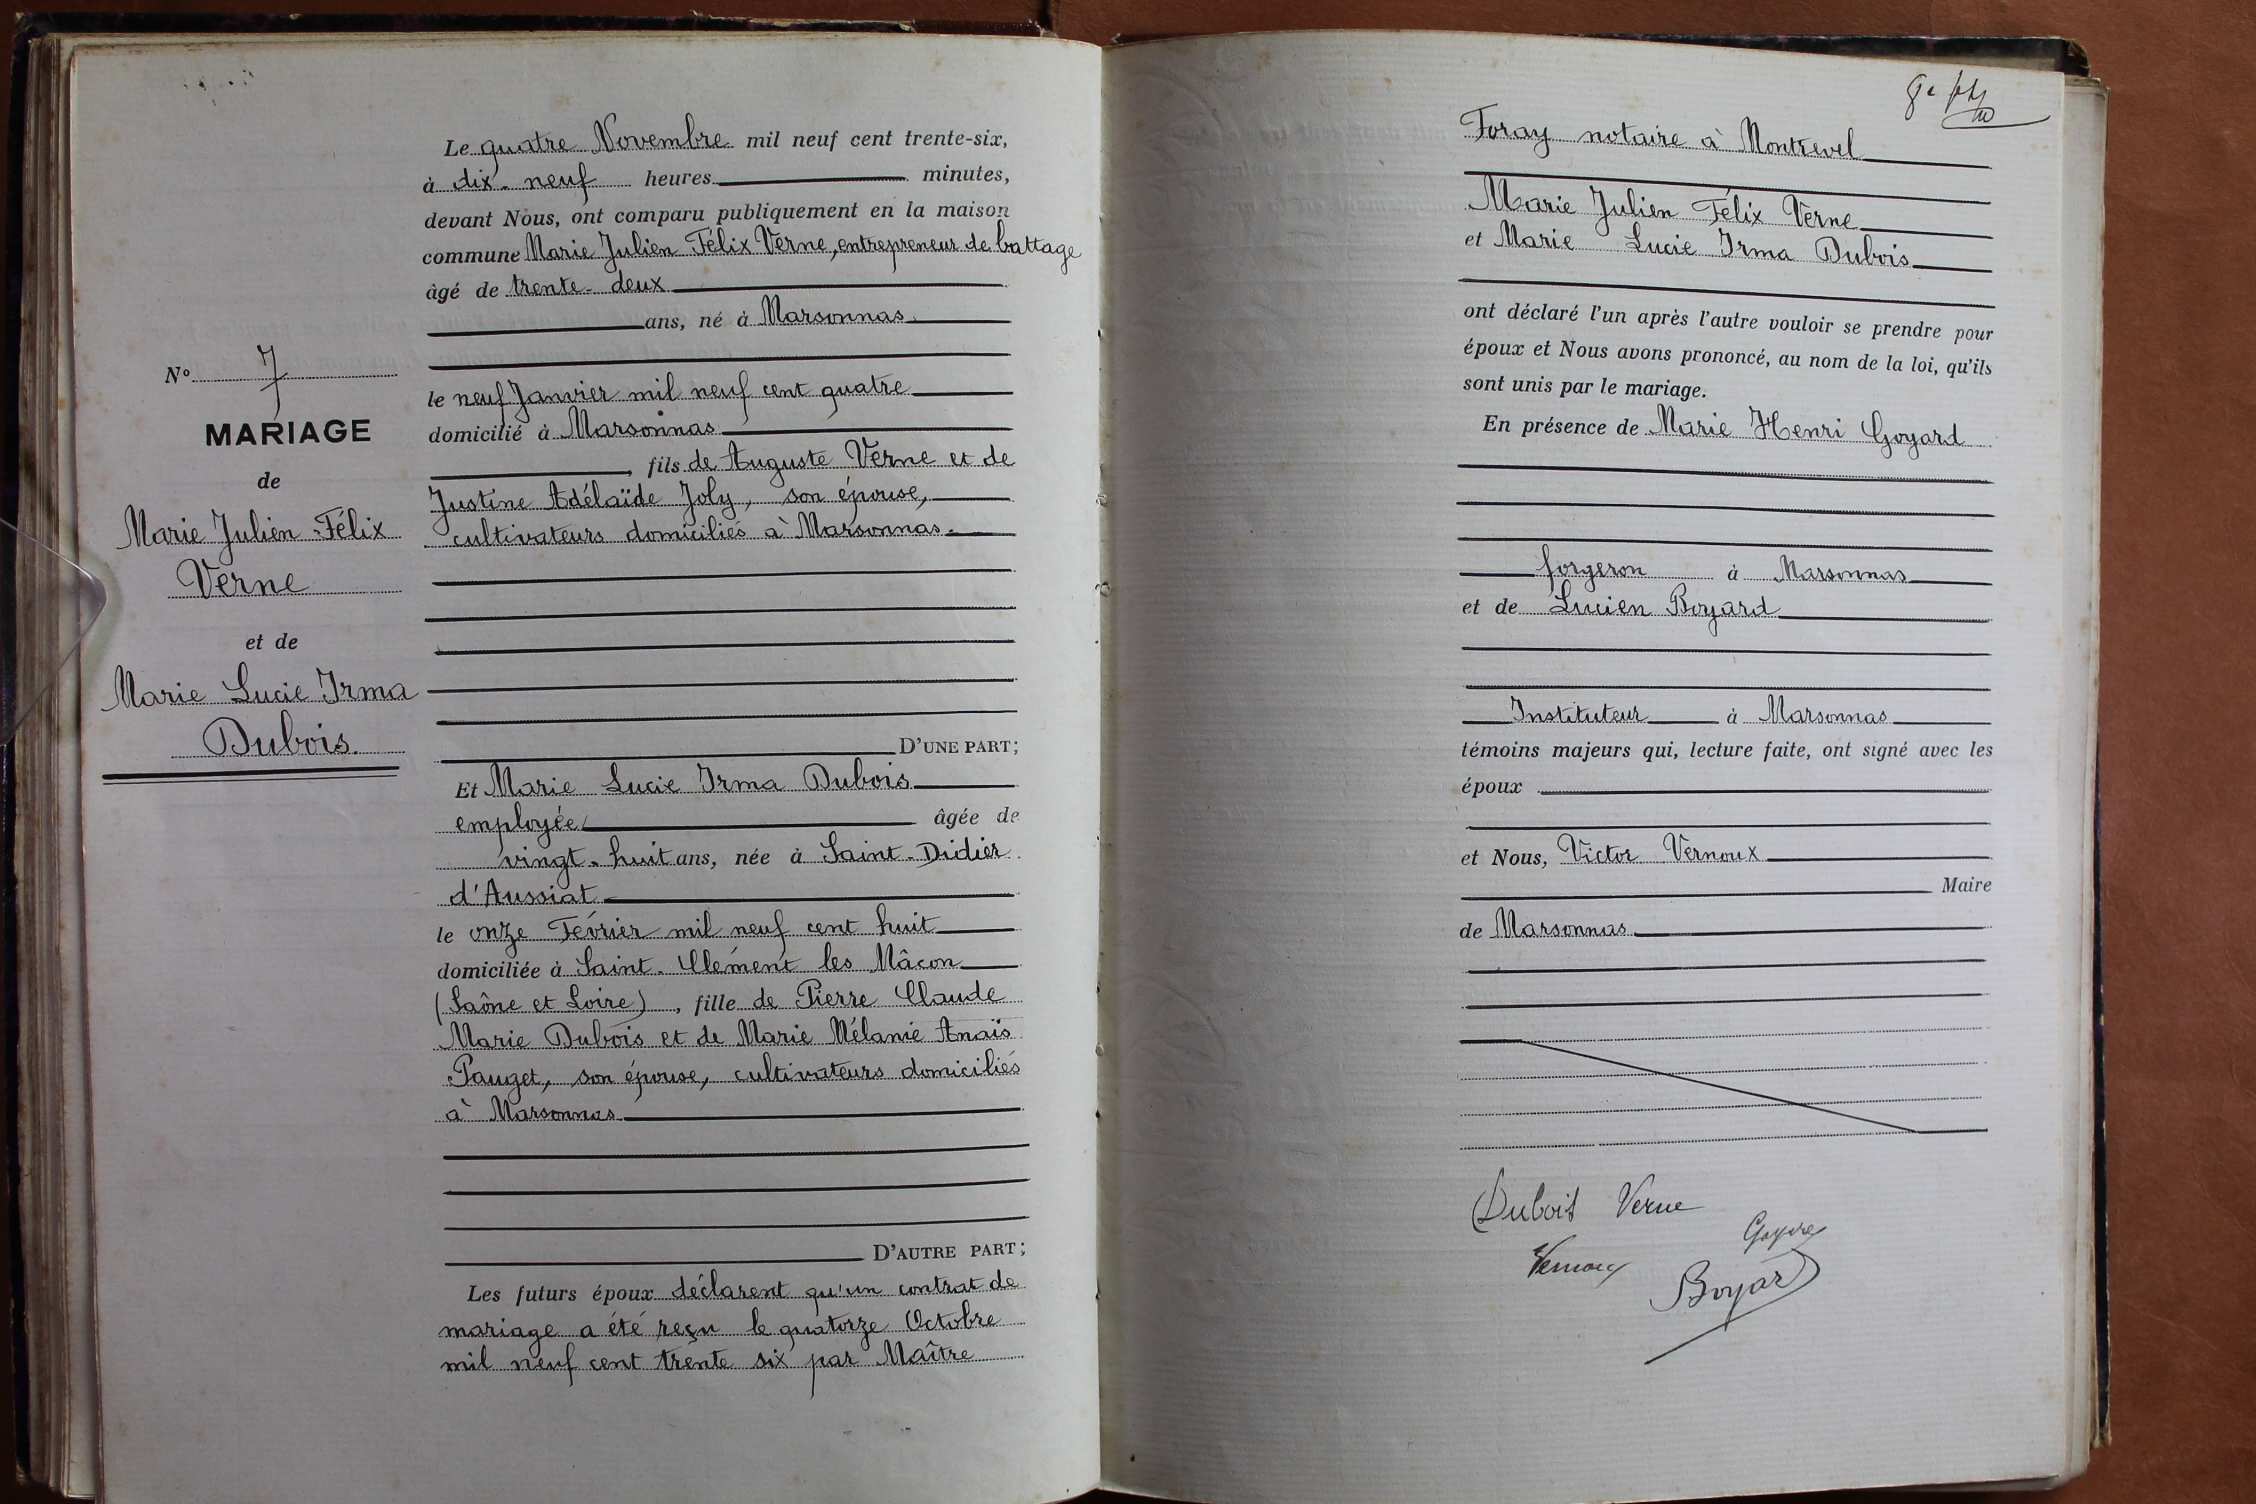 N° 7
MARIAGE
de
Marie Julien Félix
Verne
et de
Marie Lucie Irma
Dubois.
Le quatre Novembre mil neuf cent trente-six,
à dix-neuf heures minutes,
devant Nous, ont comparu publiquement en la maison
commune Marie Julien Félix Verne, entrepreneur de battage
âgé de trente-deux
ans, né à Marsonnas
le neuf Janvier mil neuf cent quatre
domicilié à Marsonnas
, fils de Auguste Verne et de
Justine Adélaïde Joly, son épouse,
cultivateurs domiciliés à Marsonnas.
D'UNE PART;
Et Marie Lucie Irma Dubois
employée âgée de
vingt-huit ans, née à Saint-Didier
d'Aussiat
le onze Février mil neuf cent huit
domiciliée à Saint-Clément les Mâcon
(Saône et Loire), fille de Pierre Claude
Marie Dubois et de Marie Mélanie Anaïs
Pauget, son épouse, cultivateurs domiciliés
à Marsonnas
D'AUTRE PART;
Les futurs époux déclarent qu'un contrat de
mariage a été reçu le quatorze Octobre
mil neuf cent trente six par Maître
Foray notaire à Montrevel
Marie Julien Félix Verne
et Marie Lucie Irma Dubois
ont déclaré l'un après l'autre vouloir se prendre pour
époux et Nous avons prononcé, au nom de la loi, qu'ils
sont unis par le mariage.
En présence de Marie Henri Goyard
forgeron à Marsonnas
et de Lucien Boyard
Instituteur à Marsonnas
témoins majeurs qui, lecture faite, ont signé avec les
époux
et Nous, Victor Vernoux
Maire
de Marsonnas
Dubois Verne
Vernoux
Boyard